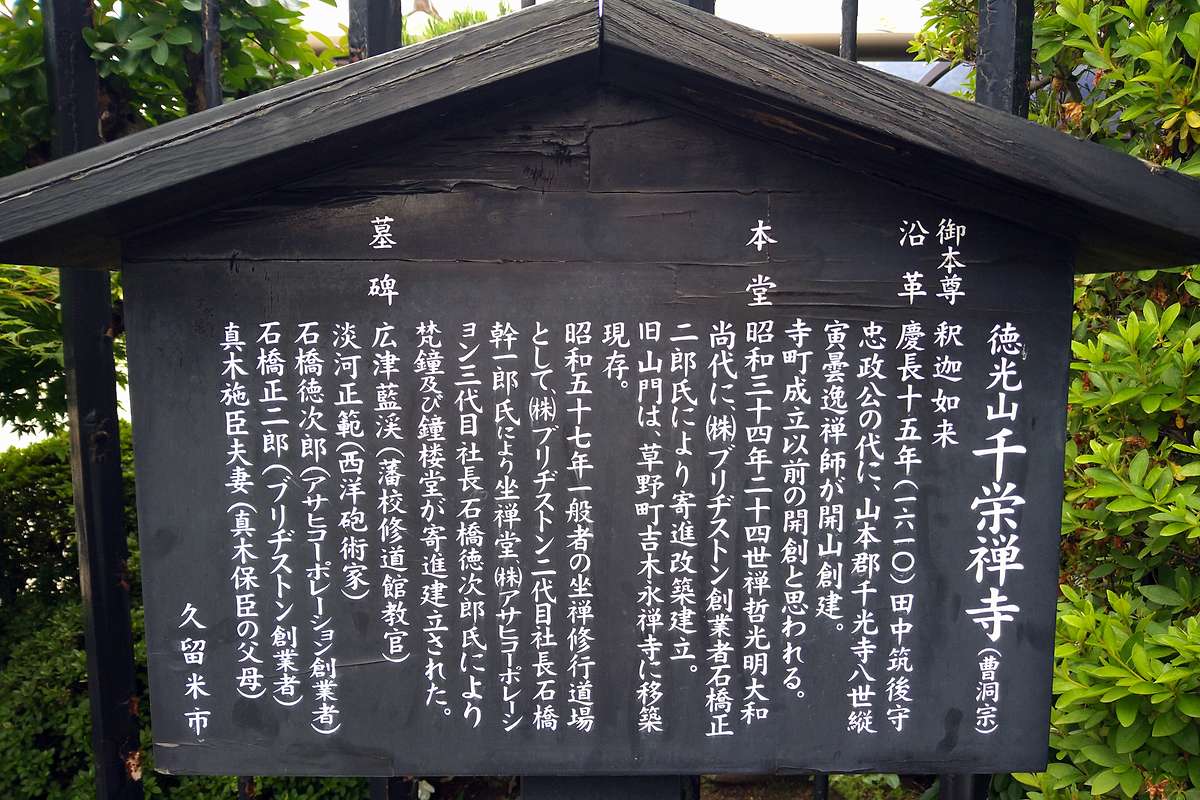 徳光山千栄禅寺(曹洞宗)
御本尊 釈迦如来
沿革 慶長十五年(一六一〇)田中筑後守
忠政公の代に、山本郡千光寺八世縦
寅曇逸禅師が開山創建。
寺町成立以前の開創と思われる。
本堂 昭和三十四年二十四世禅哲光明大和
尚代に、㈱ブリヂストン創業者石橋正
二郎氏により寄進改築建立。
旧山門は、草野町吉木永禅寺に移築
現存。
昭和五十七年一般者の坐禅修行道場
として、㈱ブリヂストン二代目社長石橋
幹一郎氏により坐禅堂㈱アサヒコーポレーシ
ョン三代目社長石橋徳次郎氏により
梵鐘及び鐘楼堂が寄進建立された。
墓碑 広津藍渓(藩校修道館教官)
淡河正範(西洋砲術家)
石橋徳次郎(アサヒコーポレーション創業者)
石橋正二郎(ブリヂストン創業者)
真木施臣夫妻(真木保臣の父母)
久留米市